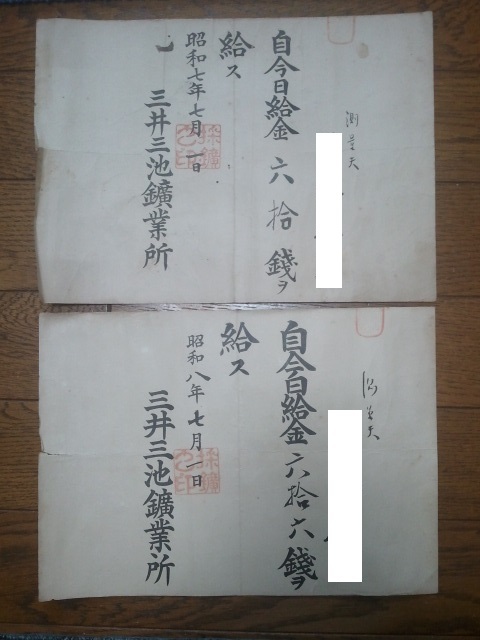 測量夫
自今日給金六拾錢ヲ
給ス
昭和七年七月一日
三井三池鑛業所
測量夫
自今日給金六拾六錢ヲ
給ス
昭和八年七月一日
三井三池鑛業所